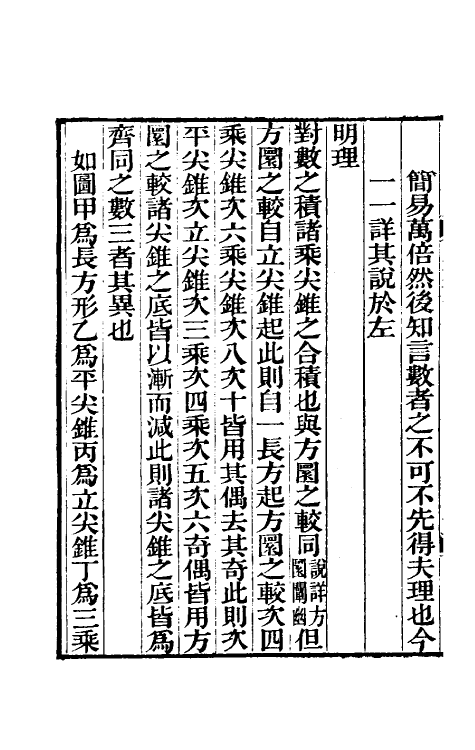 簡易萬倍然後知言數者之不可不先得夫理也今
一一詳其說於左
明理
對數之積諸乘尖錐之合積也與方圜之較同說詳方圜闡幽但
方圜之較自立尖錐起此則自一長方起方圜之較次四
乘尖錐次六乘尖錐次八次十皆用其偶去其奇此則次
平尖錐次立尖錐次三乘次四乘次五次六奇偶皆用方
圜之較諸尖錐之底皆以漸而減此則諸尖錐之底皆爲
齊同之數三者其異也
如圖甲爲長方形乙爲平尖錐丙爲立尖錐丁爲三乘